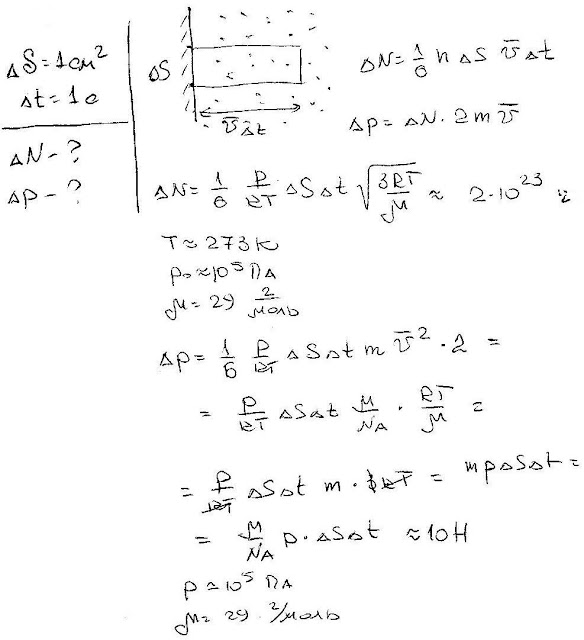 ΔS = 1 см²
Δt = 1 с
ΔN - ?
Δp - ?
ΔS
v̄Δt
ΔN = 1/6 n ΔS v̄ Δt
Δp = ΔN · 2m v̄
ΔN = 1/6 p/kT ΔSΔt √(3RT/μ) ≈ 2·10²³
T ≈ 273 К
p₀ ≈ 10⁵ ПА
μ = 29 г/моль
Δp = 1/6 p/kT ΔSΔt m v̄² · 2 =
= p/kT ΔSΔt μ/NA · RT/μ =
= p/kT ΔSΔt m · kT = mpΔSΔt =
= μ/NA p·ΔSΔt ≈ 10 Н
p ≃ 10⁵ ПА
μ = 29 г/моль